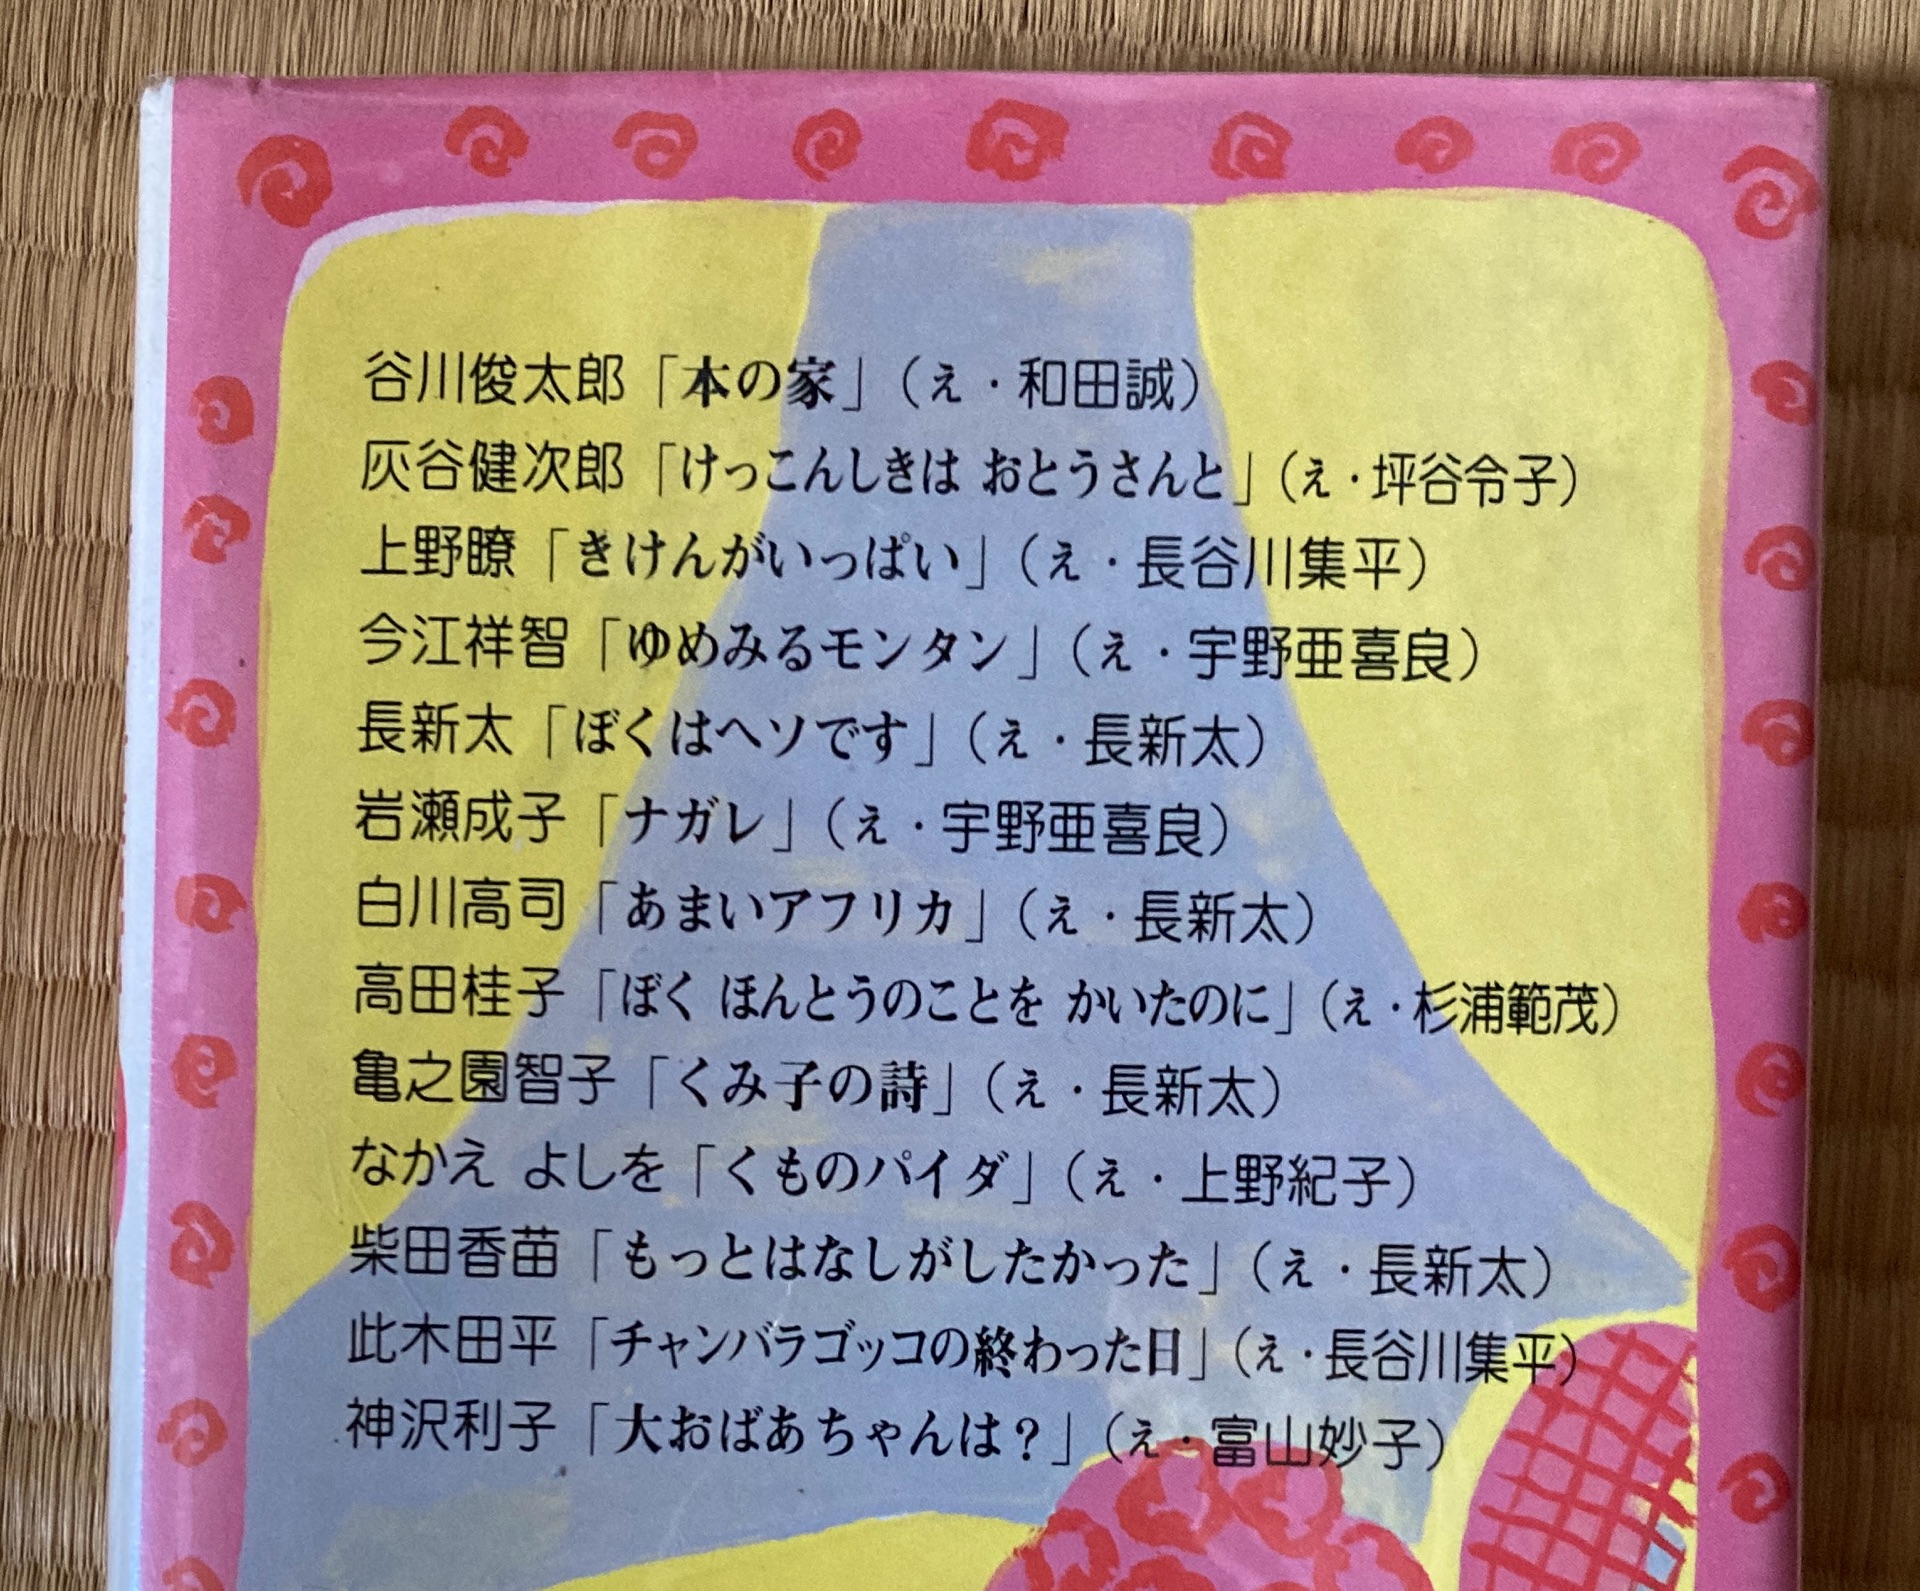 谷川俊太郎「本の家」（え・和田誠）
灰谷健次郎「けっこんしきは おとうさんと」（え・坪谷令子）
上野瞭「きけんがいっぱい」（え・長谷川集平）
今江祥智「ゆめみるモンタン」（え・宇野亜喜良）
長新太「ぼくはヘソです」（え・長新太）
岩瀬成子「ナガレ」（え・宇野亜喜良）
白川高司「あまいアフリカ」（え・長新太）
高田桂子「ぼく ほんとうのことを かいたのに」（え・杉浦範茂）
亀之園智子「くみ子の詩」（え・長新太）
なかえ よしを「くものパイダ」（え・上野紀子）
柴田香苗「もっとはなしがしたかった」（え・長新太）
此木田平「チャンバラゴッコの終わった日」（え・長谷川集平）
神沢利子「大おばあちゃんは？」（え・富山妙子）